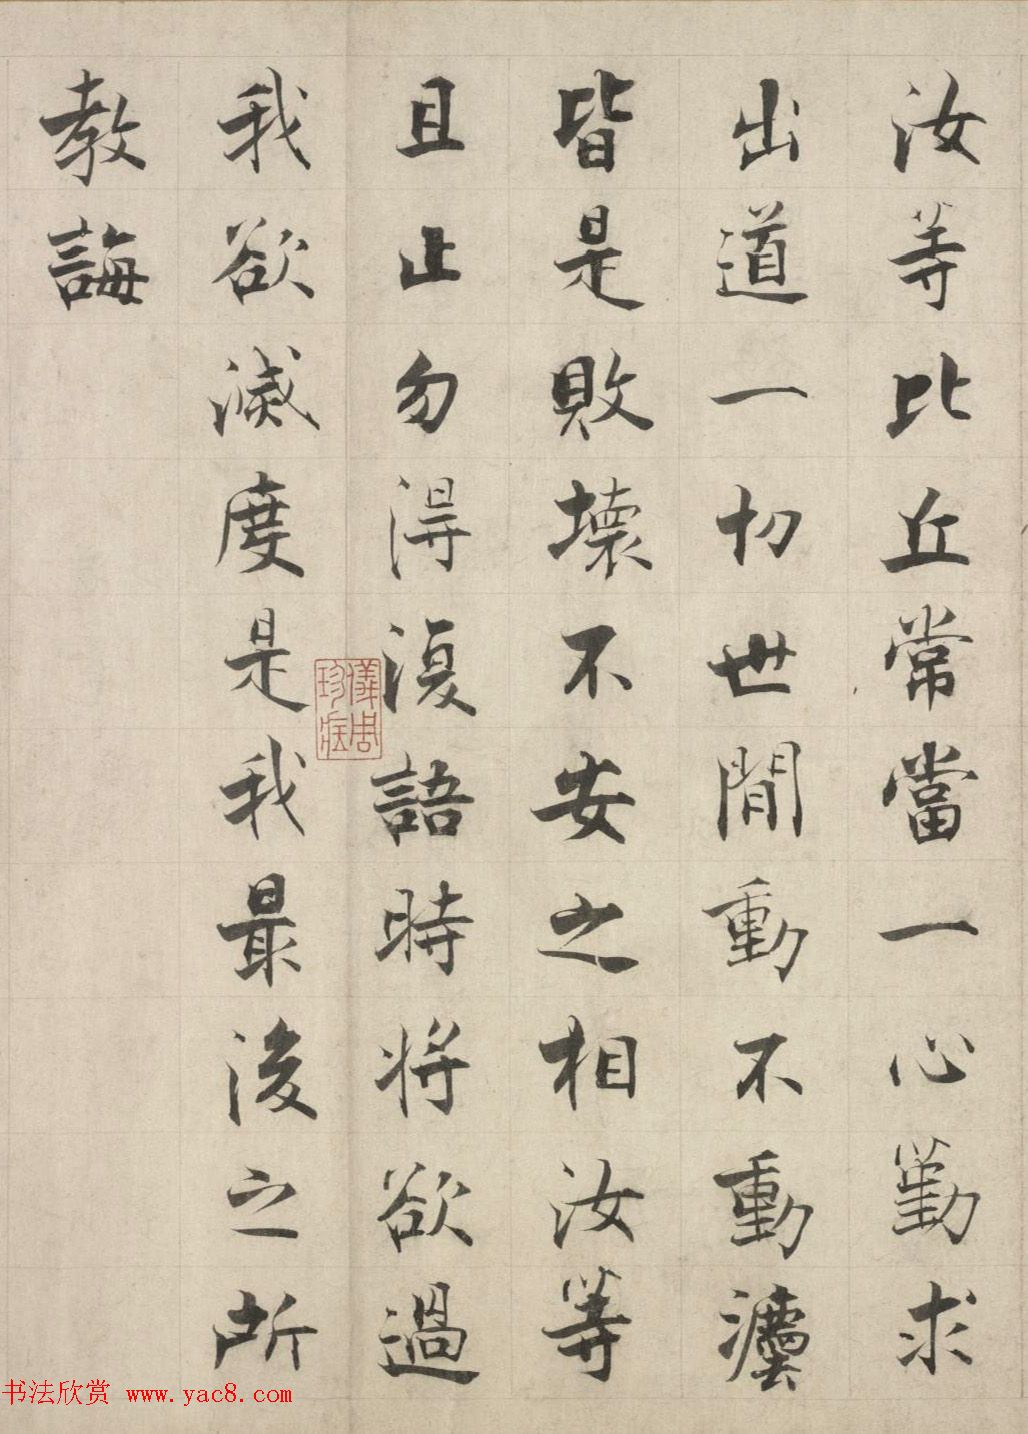 汝等比丘常當一心勤求
出道一切世間動不動瀳
皆是敗壞不安之相汝等
且止勿得復語時將欲過
我欲滅度是我最後之所
教誨
儀周珍藏
书法欣赏 www.yac8.com